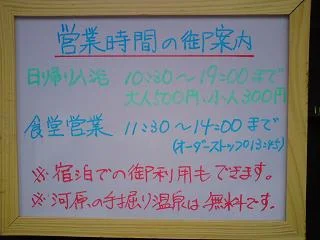 営業時間の御案内
日帰り入浴 10:30〜19:00まで
大人500円、小人300円
食堂営業 11:30〜14:00まで
(オーダーストップ13:45)
※宿泊での御利用もできます。
※河原の手掘り温泉は無料です。